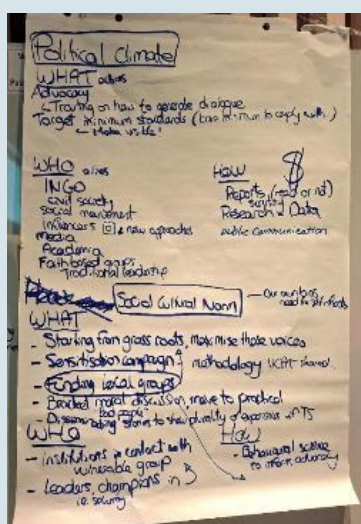 Political climate
WHAT actions
Advocacy
Training on how to generate dialogue
Target minimum standards (bare minimum to comply with)
make visible!
WHO
INGO
civil society
social movement
influencers & new approaches
media
Academia
Faith based groups
Traditional leadership
HOW
$
Reports, (read or not)
Research & Data
public communication
Social Cultural Norm
WHAT
- Starting from grass roots, maximise those voices
- Sensitisation campaign methodology shared
- Funding local groups
- Bracket moral discussion move to practical
"bad people"
- Disseminating stories to show plurality of experience
WHO
- institutions in contact with
vulnerable group
- Leaders, champions in
i.e. security
How
- Behavioural science
to inform advocacy